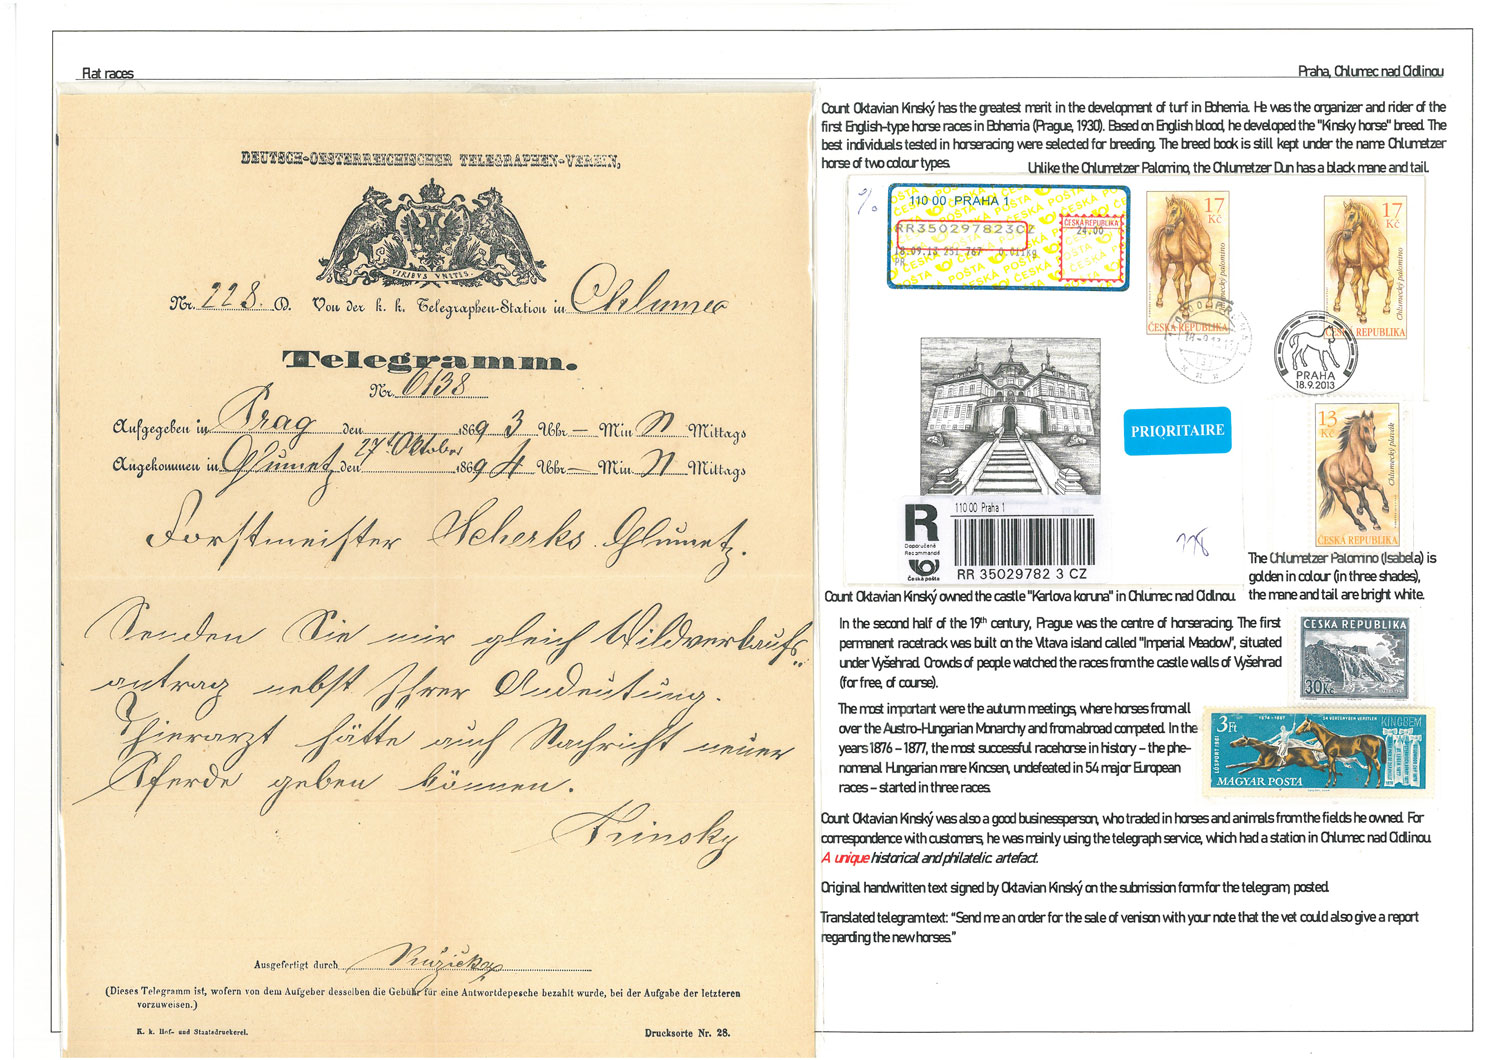 Flat races
Praha, Chlumec nad Cidlinou
DEUTSCH-OESTERREICHISCHER TELEGRAPHEN-VEREIN,
VIRIBUS UNITIS.
Nr. 228. D. Von der k. k. Telegraphen-Station in Chlumec
Telegramm.
Nr. 6138
Aufgegeben in Prag den 1869 3 Uhr — Min N Mittags
27t Oktober
Angekommen in Chlumetz den 1869 4 Uhr — Min N Mittags
Forstmeister Chlumetz.
Senden Sie mir gleich Wildverkaufs-
antrag nebst Ihrer Andeutung.
Thierarzt hätte auch Nachricht neuer
Pferde geben können.
Kinsky
Ausgefertigt durch Růžička
(Dieses Telegramm ist, wofern von dem Aufgeber desselben die Gebühr für eine Antwortdepesche bezahlt wurde, bei der Aufgabe der letzteren
vorzuweisen.)
K. k. Hof- und Staatsdruckerei.
Drucksorte Nr. 28.
Count Oktavian Kinský has the greatest merit in the development of turf in Bohemia. He was the organizer and rider of the
first English-type horse races in Bohemia (Prague, 1930). Based on English blood, he developed the "Kinsky horse" breed. The
best individuals tested in horseracing were selected for breeding. The breed book is still kept under the name Chlumetzer
horse of two colour types.
Unlike the Chlumetzer Palomino, the Chlumetzer Dun has a black mane and tail.
110 00 PRAHA 1
RR350297823CZ
ČESKÁ REPUBLIKA
24.00
18.09.13 251 767 0.011kg
PR
ČESKÁ POŠTA
17
Kč
Chlumecký palomino
ČESKÁ REPUBLIKA
17
Kč
Chlumecký palomino
ČESKÁ REPUBLIKA
PRAHA
18.9.2013
PRIORITAIRE
13
Kč
Chlumecký plavák
ČESKÁ REPUBLIKA
R
Doporučeně
Recommandé
Česká pošta
110 00 Praha 1
RR 35029782 3 CZ
The Chlumetzer Palomino (Isabela) is
golden in colour (in three shades),
the mane and tail are bright white.
Count Oktavian Kinský owned the castle "Karlova koruna" in Chlumec nad Cidlinou.
In the second half of the 19th century, Prague was the centre of horseracing. The first
permanent racetrack was built on the Vltava island called "Imperial Meadow", situated
under Vyšehrad. Crowds of people watched the races from the castle walls of Vyšehrad
(for free, of course).
ČESKÁ REPUBLIKA
30Kč
The most important were the autumn meetings, where horses from all
over the Austro-Hungarian Monarchy and from abroad competed. In the
years 1876 – 1877, the most successful racehorse in history – the phe-
nomenal Hungarian mare Kincsen, undefeated in 54 major European
races – started in three races.
3Ft
1874-1887
54 VERSENYBEN VERETLEN
KINCSEM
LÓSPORT 1961
MAGYAR POSTA
Count Oktavian Kinský was also a good businessperson, who traded in horses and animals from the fields he owned. For
correspondence with customers, he was mainly using the telegraph service, which had a station in Chlumec nad Cidlinou.
A unique historical and philatelic. artefact.
Original handwritten text signed by Oktavian Kinský on the submission form for the telegram, posted.
Translated telegram text: "Send me an order for the sale of venison with your note that the vet could also give a report
regarding the new horses."